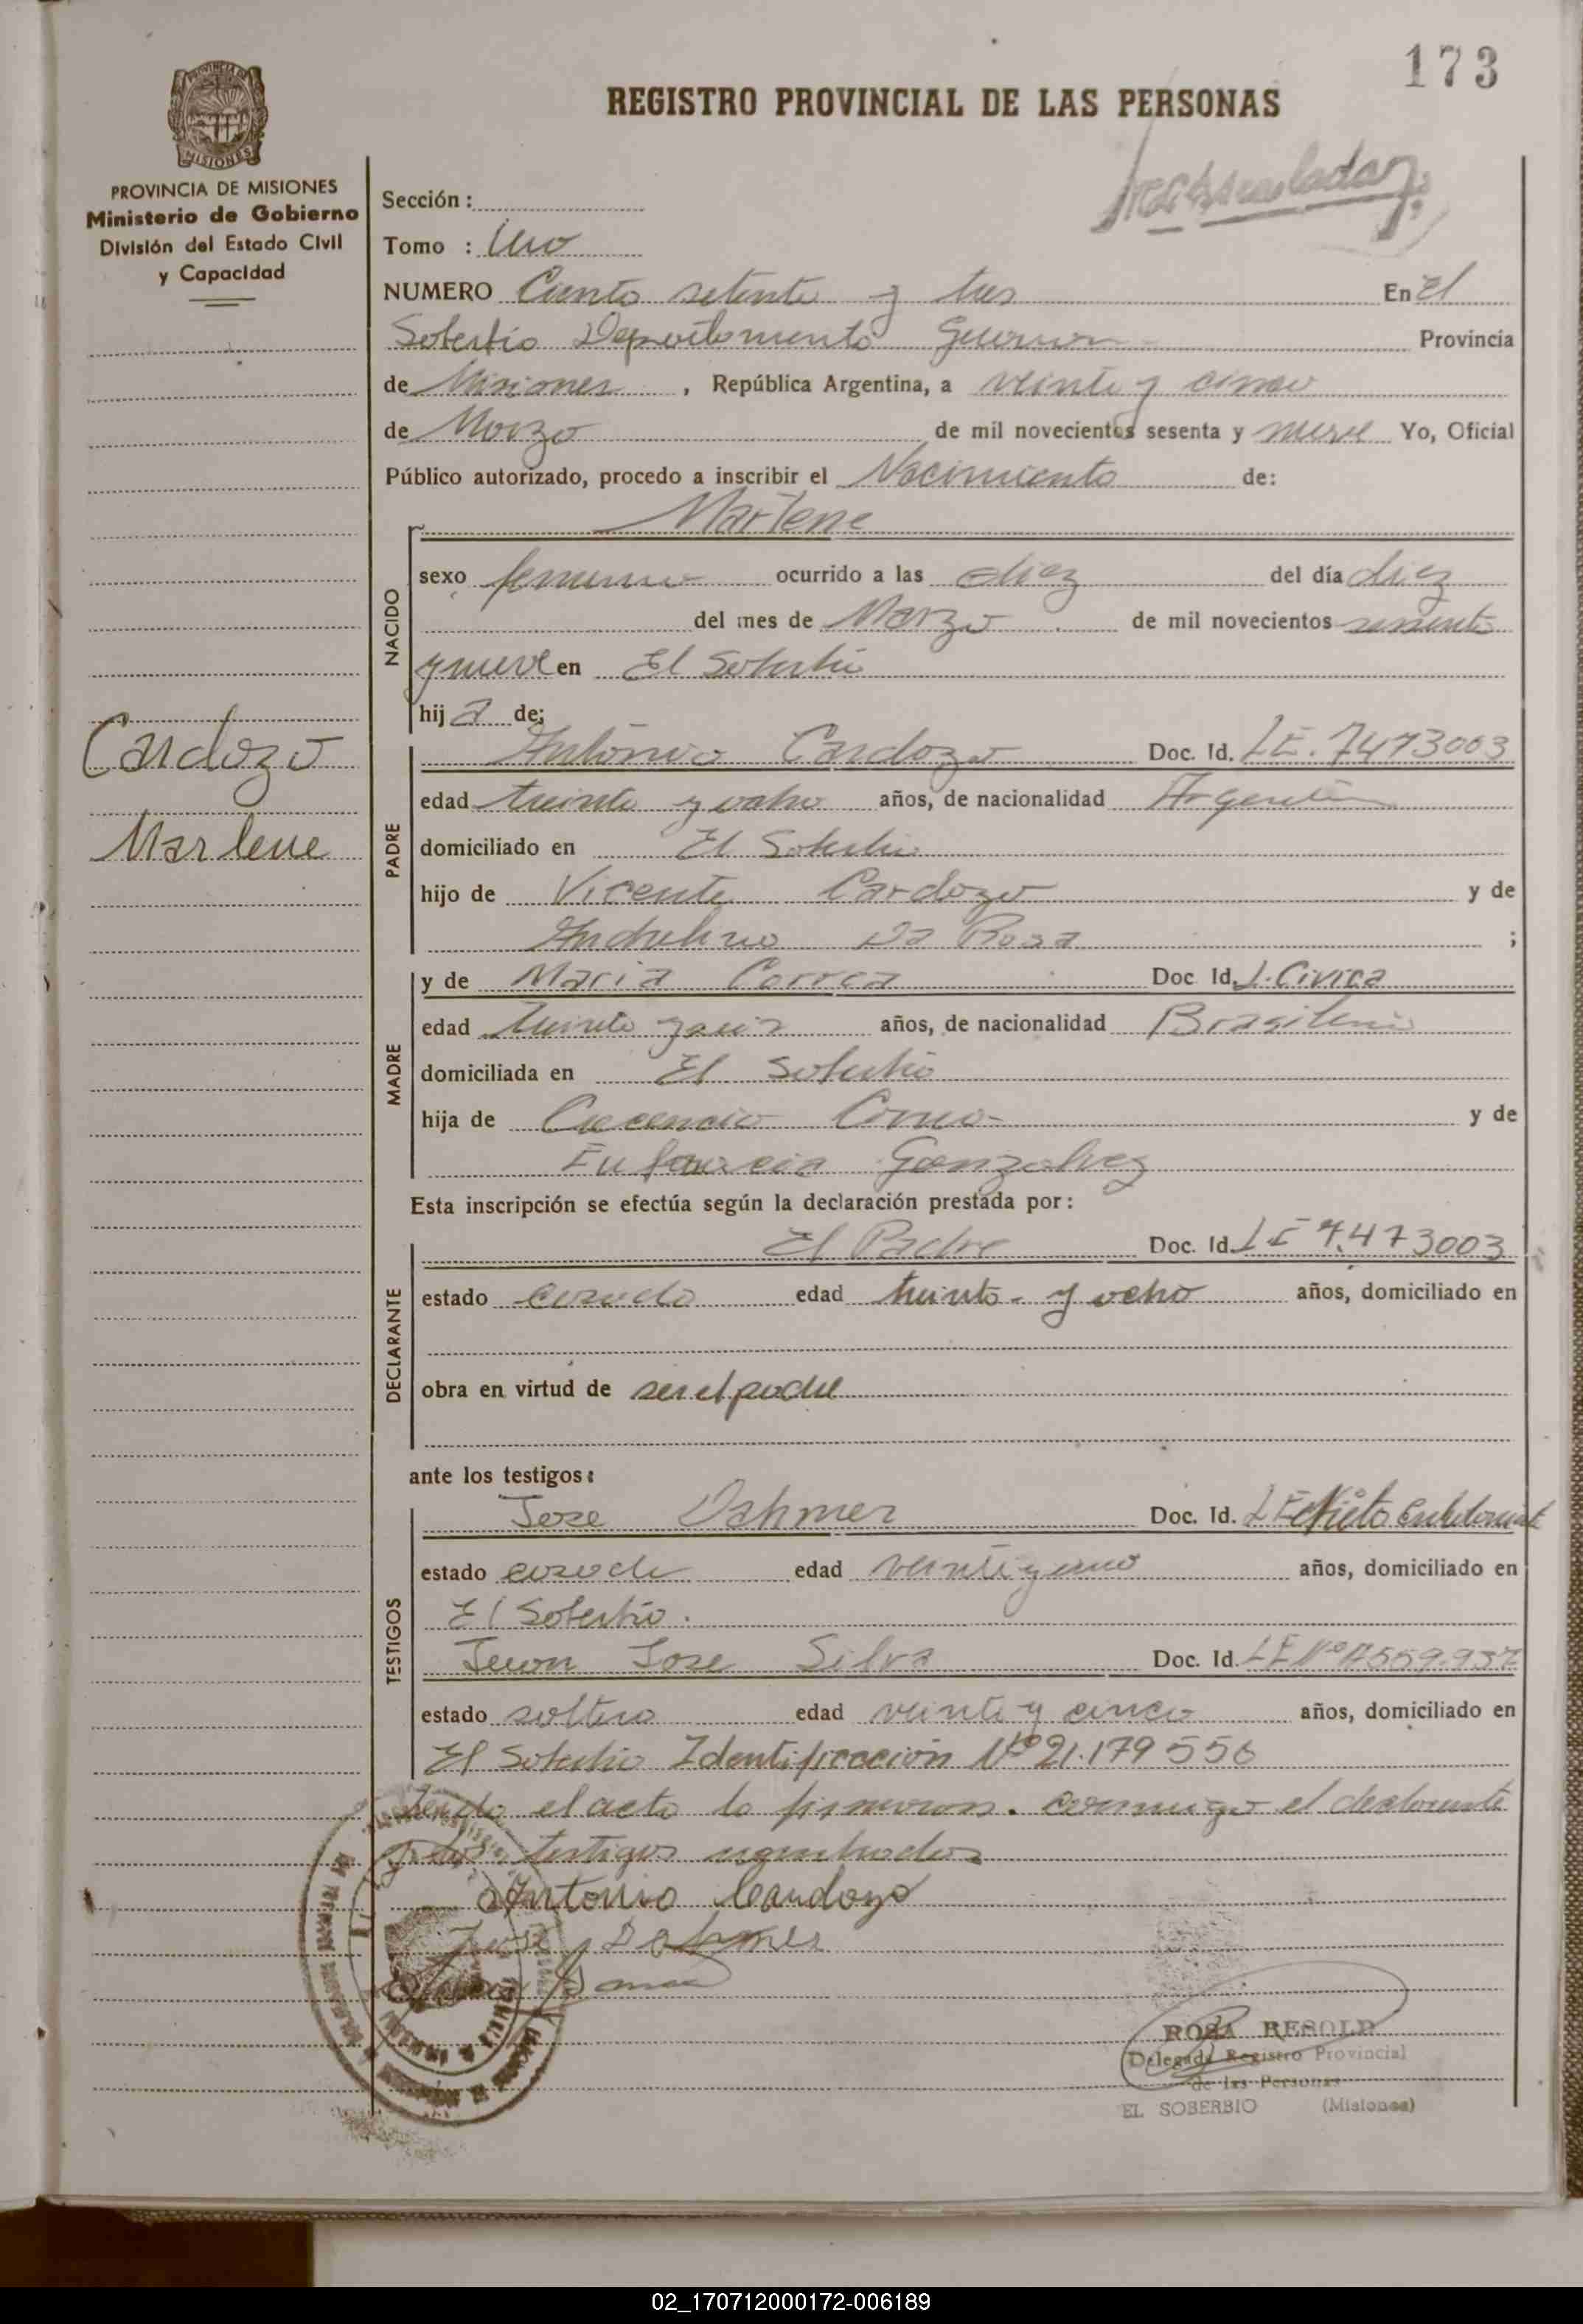 173
REGISTRO PROVINCIAL DE LAS PERSONAS
MISIONES
PROVINCIA DE MISIONES
Ministerio de Gobierno
División del Estado Civil
y Capacidad
Sección :
Tomo : Uno
NUMERO Ciento setenta y tres En El
Soberbio Departamento Guarani Provincia
de Misiones , República Argentina, a veinte y cinco
de Marzo de mil novecientos sesenta y nueve Yo, Oficial
Público autorizado, procedo a inscribir el Nacimiento de:
Marlene
NACIDO
sexo femenino ocurrido a las diez del día diez
del mes de Marzo de mil novecientos sesenta
y nueve en El Soberbio
hij a de:
Cardozo
Marlene
PADRE
Antonio Cardozo Doc. Id. LE. 7473003
edad treinta y ocho años, de nacionalidad Argentina
domiciliado en El Soberbio
hijo de Vicente Cardozo y de
Da Rosa ;
MADRE
y de Maria Correa Doc Id. L. Civica
edad treinta y años, de nacionalidad Brasilera
domiciliada en El Soberbio
hija de y de
Gonzalvez
Esta inscripción se efectúa según la declaración prestada por:
DECLARANTE
El Padre Doc. Id. LE 7.473003
estado casado edad treinta y ocho años, domiciliado en
obra en virtud de ser el padre
ante los testigos:
TESTIGOS
Jose Dahmer Doc. Id. LE
estado casado edad veinti y uno años, domiciliado en
El Soberbio.
Juan Jose Silva Doc. Id. LE Nº 7559.937
estado soltero edad veinte y cinco años, domiciliado en
El Soberbio Identificación Nº 21.179 556
Leido el acta lo firmaron conmigo el declarante
y los testigos
Antonio Cardozo
Jose Dahmer
ROSA RESOLD
Delegada Registro Provincial
de las Personas
EL SOBERBIO (Misiones)
02_170712000172-006189